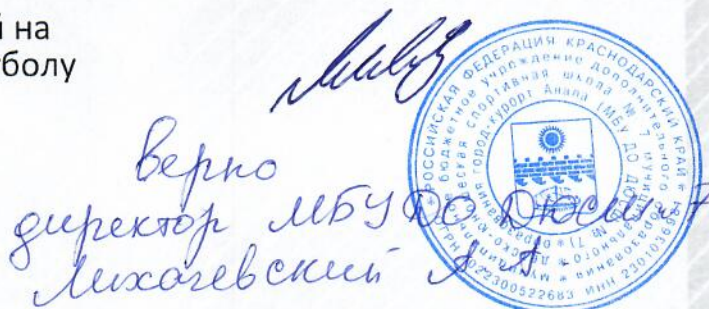 й на
тболу
верно
директор МБУ ДО ДЮСШ №7
Лихачевский А.А
РОССИЙСКАЯ ФЕДЕРАЦИЯ КРАСНОДАРСКИЙ КРАЙ
бюджетное учреждение дополнительного образования
спортивная школа № 7
город-курорт Анапа (МБУ ДО ДЮСШ № 7)
ИНН 2301036